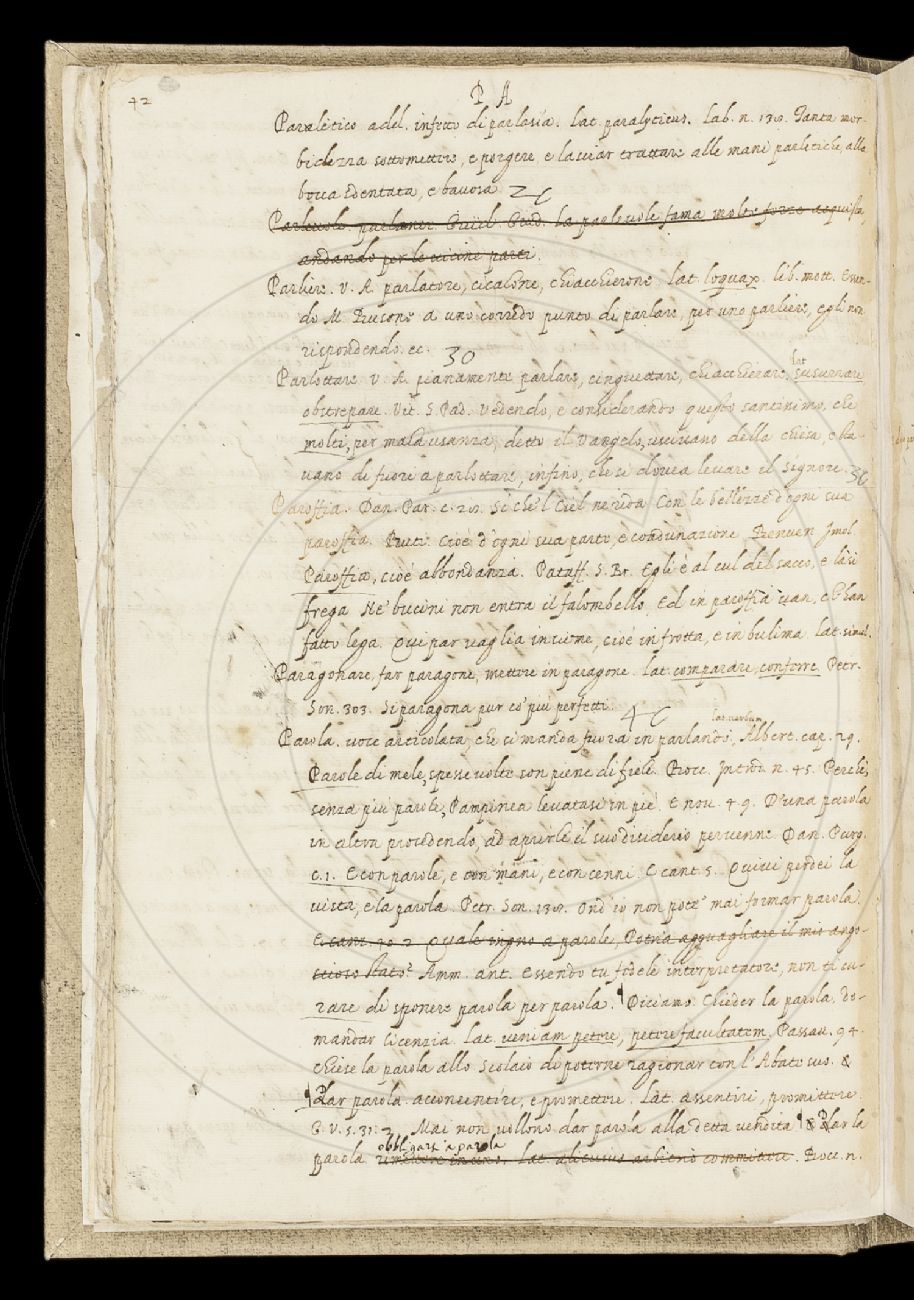 42
P A
Paraletico adel. infetto di parlasía. Lat. paralyticus. Lab. n. 138. Tanta mor-
bidezza sottomettere, e porgere, e lasciar trattare alle mani parletiche, alla
bocca sdentata, e bavosa
Parlevole. La parlevole fama molte forze acquista,
andando per le vicine parti.
Parliere. V. A. parlatore, cicalone, chiacchierone. Lat. loquax. lib. mott. Essen-
do M. a uno corredo punto di parlare, per uno parliere, egli non
rispondendo. ec. 30
Parlottare. V. A. pianamente parlare, cinguettare, chiacchierare, lat. susurrare
obstrepare. Vit. S. Pad. Vedendo, e considerando questo santissimo, che
molti, per mala usanza, detto il Vangelo, uscivano della chiesa, e sta-
vano di fuori a parlottare, infino, che si dovea levare il Signore.
Paroffia. Dan. Par. c. 28. Si che'l Ciel ne rida Con le bellezze d'ogni sua
paroffia. Buti. Cioè d'ogni sua parte, e coadunazione. Benven. Imol.
Paroffia, cioè abbondanza. Pataff. S. Br. Egli è al cul del sacco, e là si
frega Ne' bucini non entra il falombello, Ed in paroffia van, ch'han
fatto lega. Qui par vaglia insieme, cioè in frotta, e in bulima. Lat. simul.
Paragonare, far paragone, mettere in paragone. Lat. comparare, conferre. Petr.
Son. 303. Si paragona pur co' più perfetti.
Parola. voce articolata, che si manda fuora in parlando, lat. verbum Albert. cap. 29.
Parole di mele, spesse volte son piene di fiele. Bocc. Introd. n. 45. Perchè,
senza più parole, Pampinea levatasi in piè. E nov. 49. D'una parola
in altra procedendo, ad aprirle il suo disiderio pervenne. Dan. Purg.
c. 1. E con parole, e con mani, e con cenni. E cant. 5. Quivi perdei la
vista, e la parola. Petr. Son. 138. Ond'io non potè mai formar parola.
E canz. 40. 2 Quale ingno a parole, Potria agguagliare il mio ango-
scioso stato? Amm. ant. Essendo tu fedele interpretatore, non ti cu-
rare di sponere parola per parola. ¶ Diciamo. Chieder la parola. do-
mandar licenzia. Lat. veniam petere, petere facultatem. Passav. 94.
Chiese la parola allo Scolaio di poterne ragionar con l'Abate suo. &
¶ Dar parola. acconsentire, e promettere. Lat. assentiri, promittere.
G. V. 5. 31. 2. Mai non vollono dar parola alla detta vendita ¶ & Dar la
parola obbligarsi a parola rimettere in uno. Lat. alicuius arbitrio committere. Bocc. n.